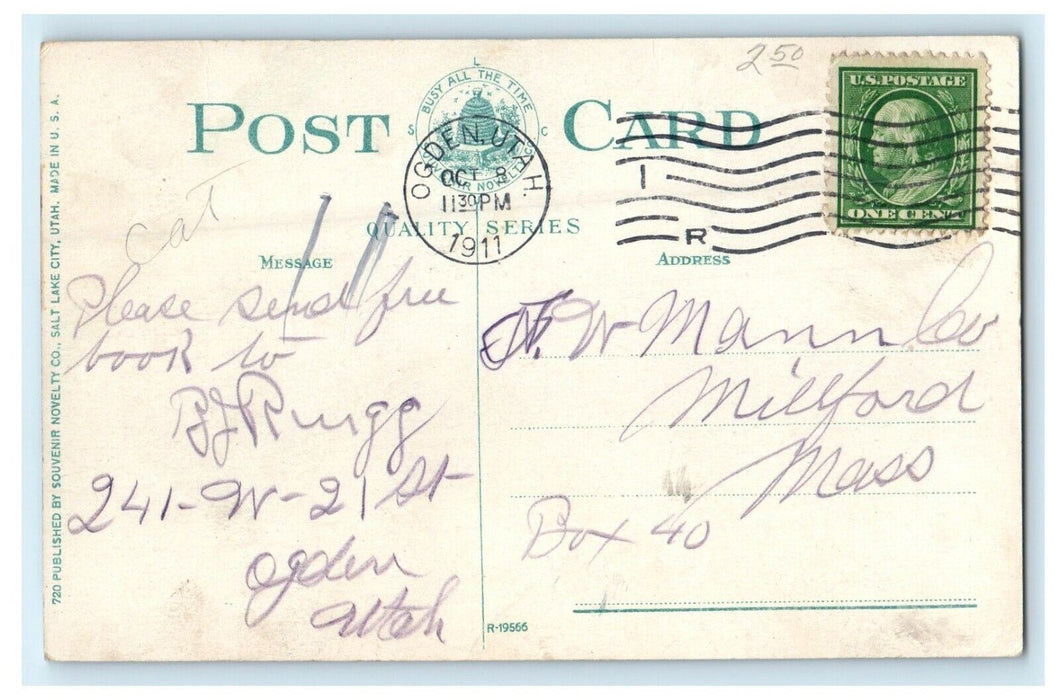 2 50
U.S.POSTAGE
ONE CENT
POST CARD
BUSY ALL THE TIME
S L C
SOUVENIR NOVELTY CO.
OGDEN, UTAH.
OCT 8
11 30 PM
1911
I
R
QUALITY SERIES
Cat
MESSAGE
Please send free
book to
241-W-21 St
Ogden
Utah
ADDRESS
W Mann Co
Millford
Mass
Box 40
R-19566
720 PUBLISHED BY SOUVENIR NOVELTY CO., SALT LAKE CITY, UTAH. MADE IN U. S. A.